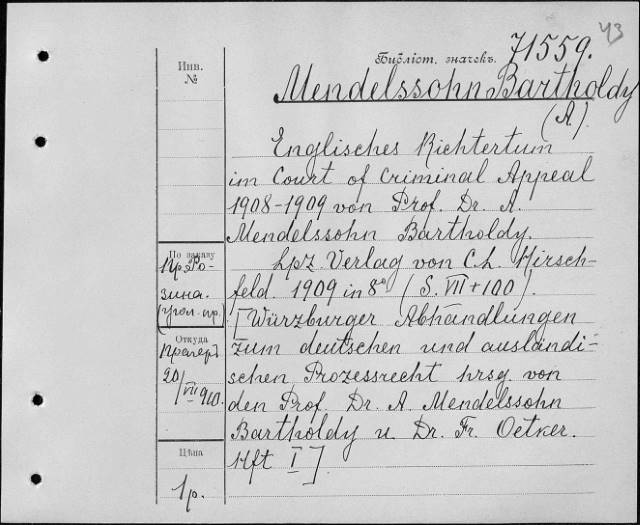 43
Инв.
№
Библіот. значекъ. 71559.
Mendelssohn Bartholdy
(A).
Englisches Richtertum
im Court of Criminal Appeal
1908-1909 von Prof. Dr. A.
Mendelssohn Bartholdy.
По заказу
Пр. Ро-
зина.
(угол. пр.)
Lpz. Verlag von C.L. Hirsch-
feld. 1909 in 8° (S. VII + 100).
[Würzburger Abhandlungen
Откуда
Прагеръ
20/VII 910.
zum deutschen und ausländi-
schen Prozessrecht hrsg. von
den Prof. Dr. A. Mendelssohn
Bartholdy u. Dr. Fr. Oetker.
Hft I]
Цѣна
1 р.